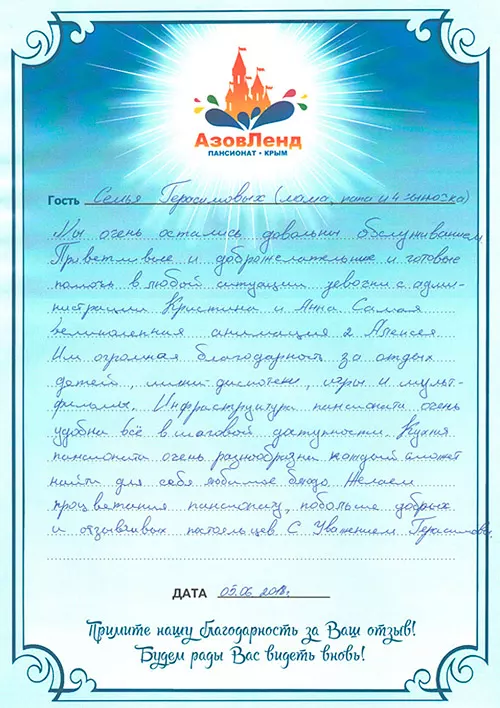 АзовЛенд
ПАНСИОНАТ • КРЫМ
Гость Семья Герасимовых (мама, папа и 4 сыночка)
Мы очень остались довольны обслуживанием.
Приветливые и доброжелательные и готовые
помочь в любой ситуации девочки с адми-
нистрации Кристина и Анна. Самая
великолепная анимация Алексея
Им огромная благодарность за отдых
детей, мини дискотеки, игры и муль-
фильмы. Инфраструктура пансионата очень
удобна всё в шаговой доступности. Кухня
пансионата очень разнообразна каждый может
найти для себя любимое блюдо. Желаем
процветания пансионату, побольше добрых
и отзывчивых постояльцев. С Уважением Герасимовы.
ДАТА 05.06.2018г.
Примите нашу благодарность за Ваш отзыв!
Будем рады Вас видеть вновь!